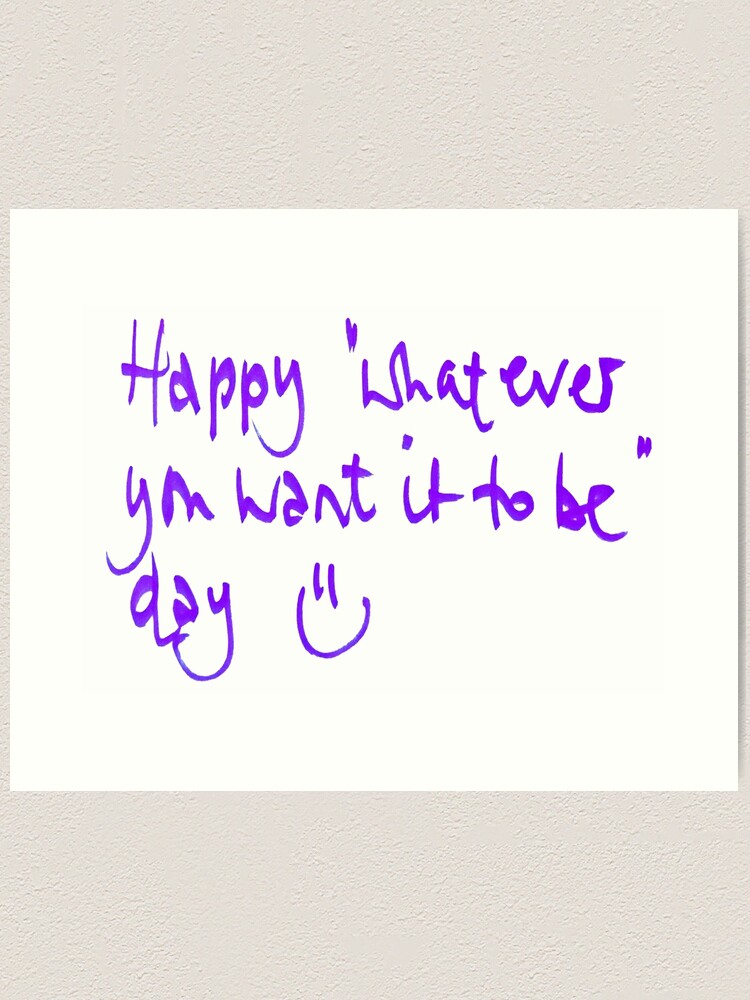 Happy "whatever
you want it to be"
day